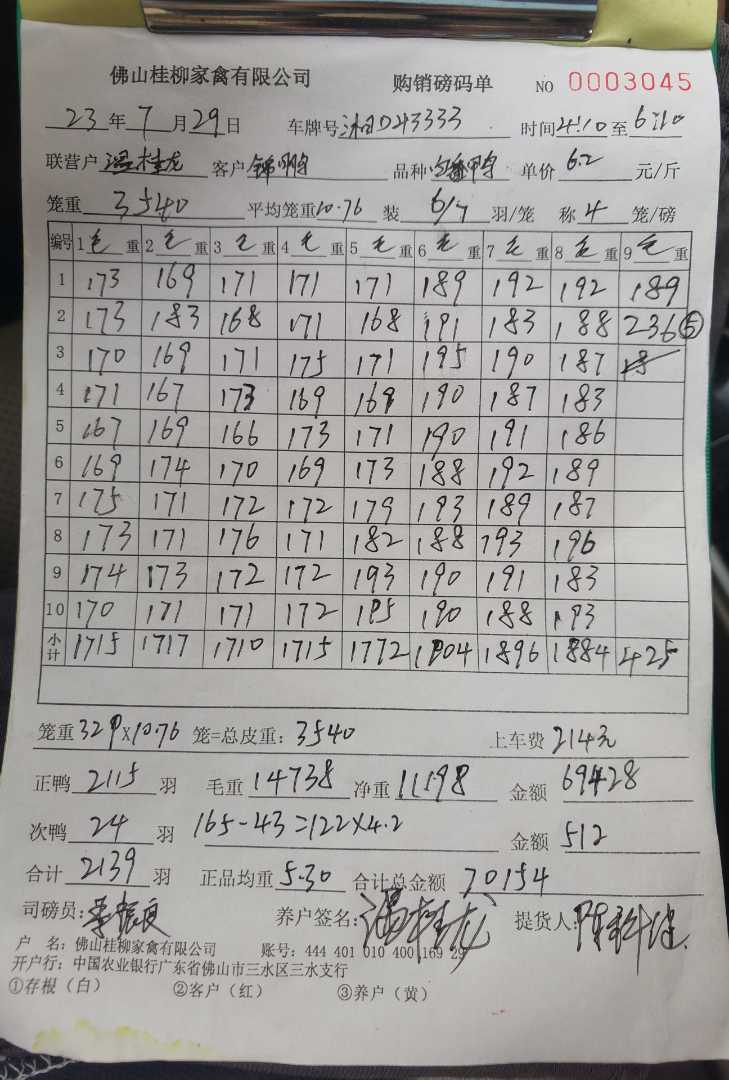 佛山桂柳家禽有限公司 购销磅码单 NO 0003045
23年7月29日 车牌号湘D43333 时间4:10至6:10
联营户温桂龙 客户锦鹏 品种 单价6.2元/斤
笼重3540 平均笼重10.76 装6/7羽/笼 称4笼/磅
编号 1毛重 2毛重 3毛重 4毛重 5毛重 6毛重 7毛重 8毛重 9毛重
1 173 169 171 171 171 189 192 192 189
2 173 183 168 171 168 191 183 188 236⑤
3 170 169 171 175 171 195 190 187
4 171 167 173 169 169 190 187 183
5 167 169 166 173 171 190 191 186
6 169 174 170 169 173 188 192 189
7 175 171 172 172 179 193 189 187
8 173 171 176 171 182 188 193 196
9 174 173 172 172 193 190 191 183
10 170 171 171 172 195 190 188 193
小计 1715 1717 1710 1715 1772 1904 1896 1884 425
笼重329×10.76笼=总皮重:3540 上车费214元
正鸭2115羽 毛重14738 净重11198 金额69428
次鸭24羽 165-43=122×4.2 金额512
合计2139羽 正品均重5.30 合计总金额70154
司磅员: 养户签名:温桂龙 提货人:
户 名:佛山桂柳家禽有限公司 账号:444 401 010 400 169 29
开户行:中国农业银行广东省佛山市三水区三水支行
①存根(白) ②客户(红) ③养户(黄)